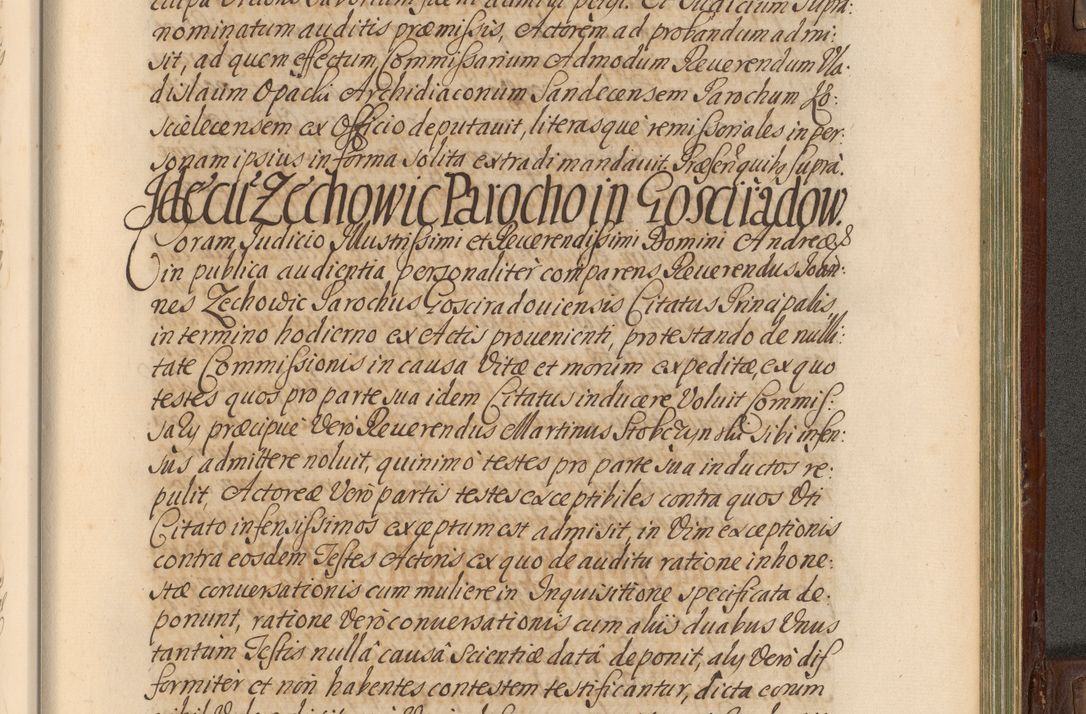 nominatum auditis præmissis, Actorem ad probandum admi-
sit, ad quem effectum Commissarium Admodum Reuerendum Vla-
dislaum Opacki Archidiaconum Sandecensem Parochum Ko-
scielecensem ex Officio deputauit, literasque remissoriales in per-
sonam ipsius in forma solita extradi mandauit. Præsentibus supra.
Idē cū Zechowic Parocho in Gosciradow.
Coram Judicio Illustrissimi et Reuerendissimi Domini Andreæ &
in publica audientia personaliter comparens Reuerendus Joan-
nes Zechowic Parochus Gosciradouiensis Citatus Principalis
in termino hodierno ex Actis prouenienti, protestando de nulli-
tate Commissionis in causa Vitæ et morum expeditæ, ex quo
testes quos pro parte sua idem Citatus inducere Voluit Commis-
sarij præcipue Vero Reuerendus Martinus Stobczynski sibi infen-
sus admittere noluit, quinimo testes pro parte sua inductos re-
pulit, Actoreæ Vero partis testes exceptibiles contra quos Vti
Citato infensissimos exceptum est admisit, in Vim exceptionis
contra eosdem Testes Actoris ex quo de auditu ratione inhone-
stæ conuersationis cum muliere in Inquisitione specificata de-
ponunt, ratione Vero conuersationis cum aliis duabus Vnus
tantum Testis nullâ causâ scientiæ datâ deponit, alij Vero dif
formiter et non habentes contestem testificantur, dicta eorum